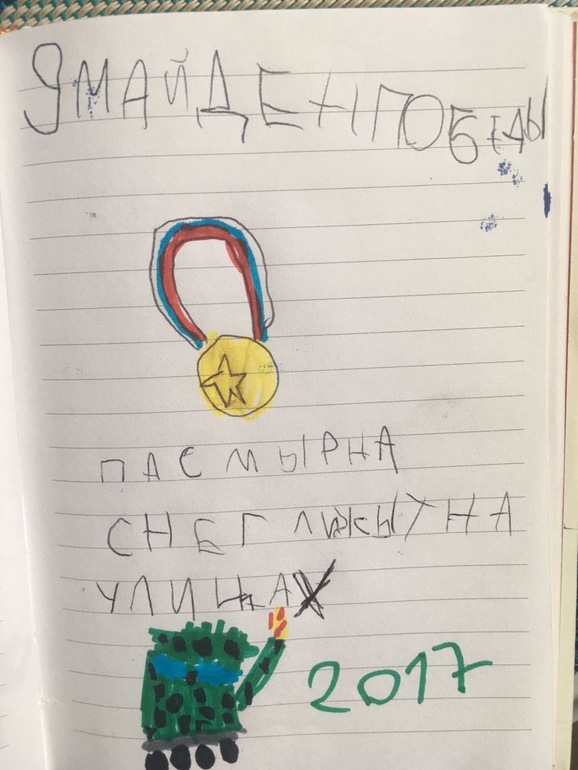 9 МАЙ ДЕН ПОБЕДЫ
ПАСМЫРНА
СНЕГ ЛИЖЫТ НА
УЛИЦАХ
2017